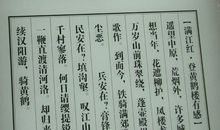 【满江红·登黄鹤楼有感】
遥望中原，荒烟外，许多
想当年，花遮柳护，凤楼
万岁山前珠翠绕，蓬壶殿
歌作。到而今，铁骑满郊
尘恶。
兵安在？膏锋
民安在？填沟壑。叹江山
千村寥落。何日请缨提锐
鞭直渡清河洛。却归来
续汉阳游，骑黄鹤。